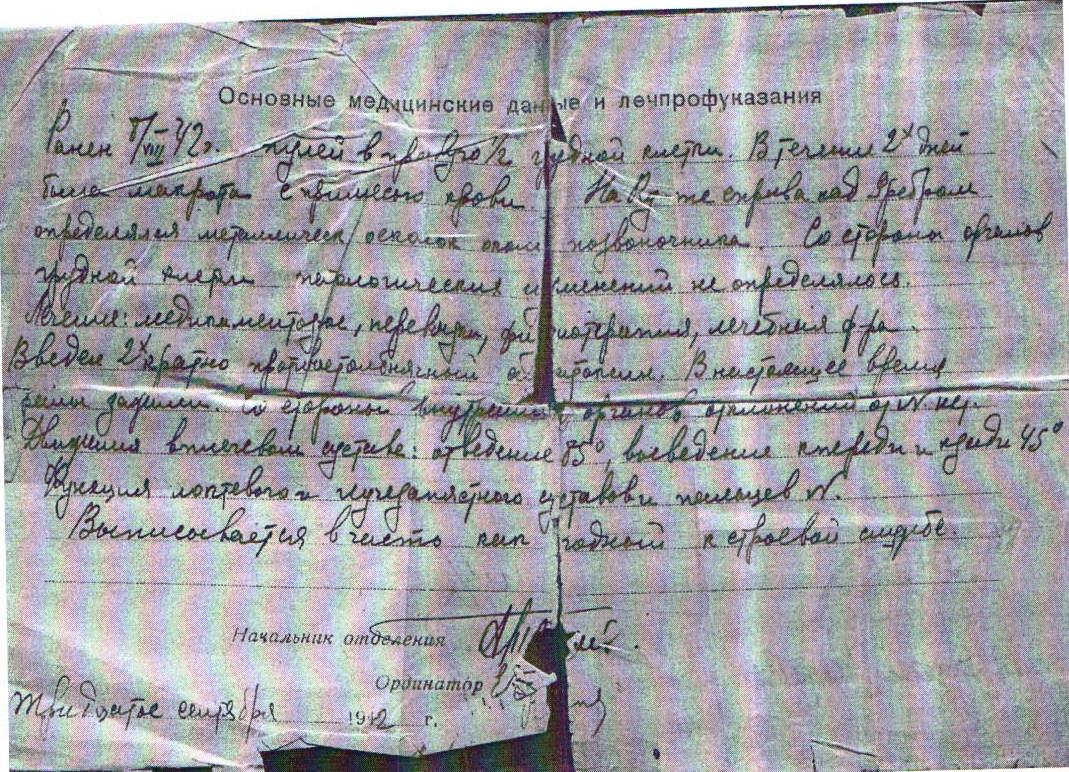 Основные медицинские данные и лечпрофуказания
Ранен 42 г. пулей в правую 1/2 грудной клетки. В течении 2х дней
была макрота с примесью крови На же справа над ребром
определялся металлическ осколок около позвоночника. Со стороны органов
грудной клетки патологических изменений не определялось.
Лечение: медикаментозное, перевязки, физиотерапия, лечебная ф-ра.
Введен 2х кратно противостолбнячный В настоящее время
раны зажили. Со стороны внутренних органов отклонений от N нет.
Движения в плечевом суставе: отведение 85°, возведение кпереди и кзади 45°
Функция локтевого и лучезапястного суставов и пальцев N.
Выписывается в часть как годный к строевой службе.
Начальник отделения
Ординатор
Тридцатое сентября 1942 г.